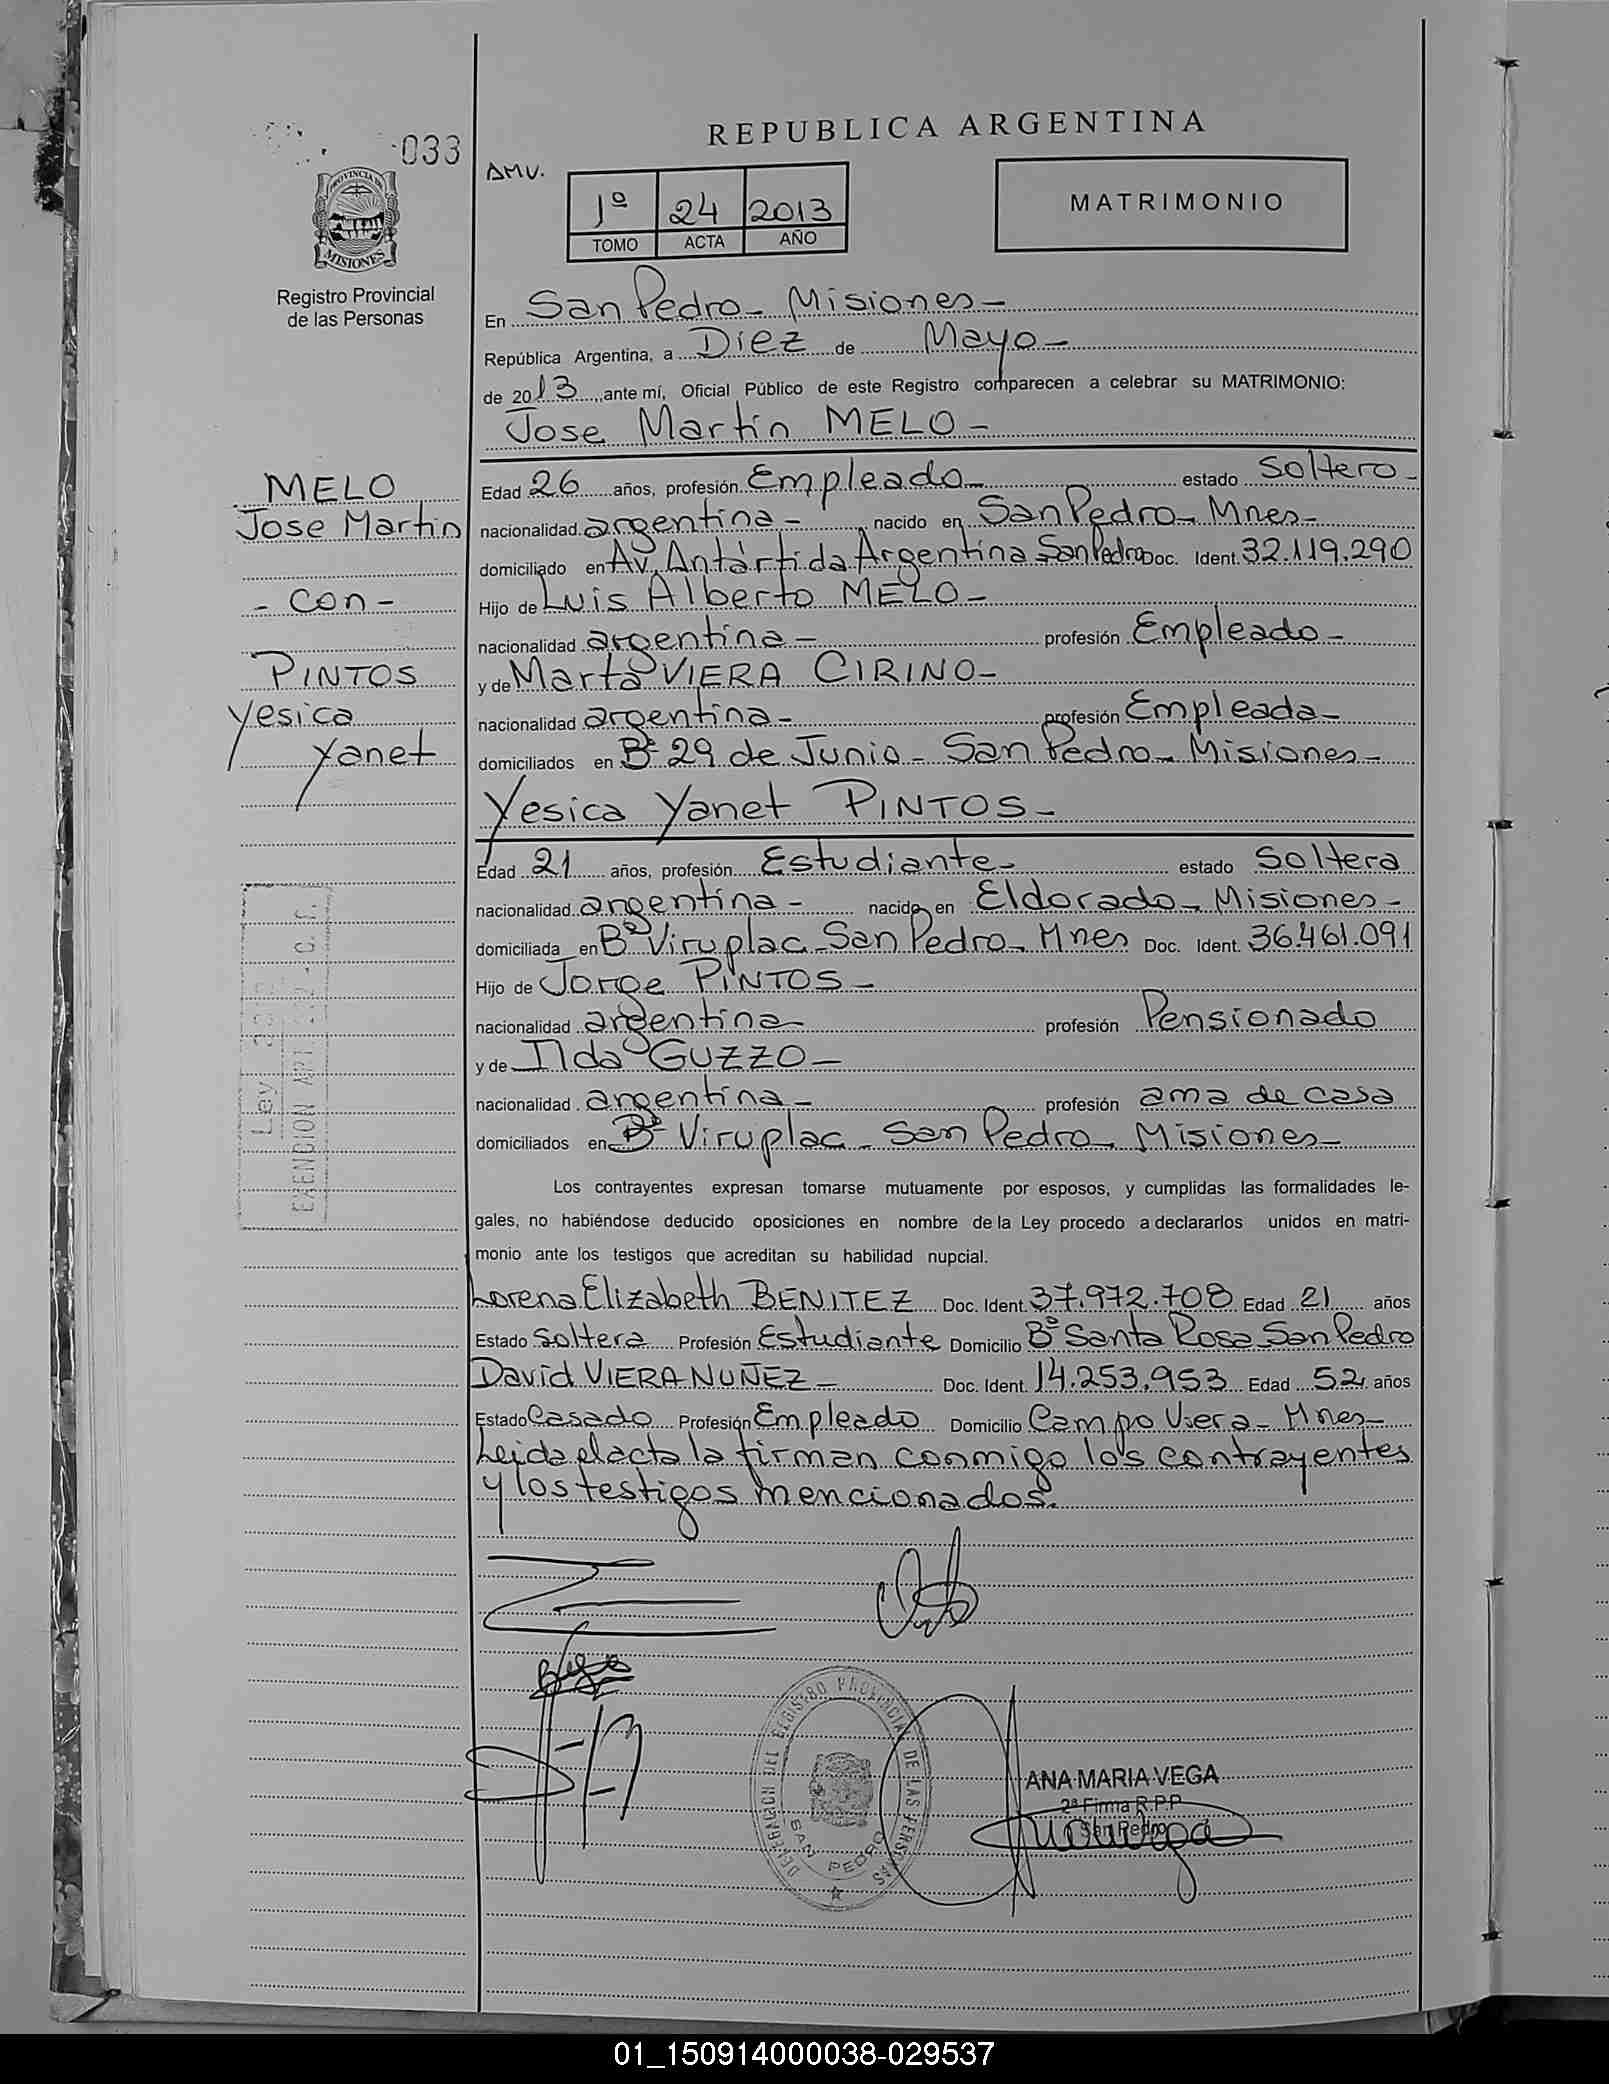 033
PROVINCIA DE
MISIONES
Registro Provincial
de las Personas
REPUBLICA ARGENTINA
AMV.
1º 24 2013
TOMO ACTA AÑO
MATRIMONIO
En San Pedro - Misiones -
República Argentina, a Diez de Mayo -
de 2013, ante mí, Oficial Público de este Registro comparecen a celebrar su MATRIMONIO:
Jose Martín MELO -
MELO
Jose Martín
- con -
PINTOS
Yesica
Yanet
Edad 26 años, profesión Empleado - estado Soltero -
nacionalidad argentina - nacido en San Pedro - Mnes -
domiciliado en Av. Antártida Argentina San Pedro Doc. Ident. 32.119.290
Hijo de Luis Alberto MELO -
nacionalidad argentina - profesión Empleado -
y de Marta VIERA CIRINO -
nacionalidad argentina - profesión Empleada -
domiciliados en Bº 29 de Junio - San Pedro - Misiones -
Yesica Yanet PINTOS -
Edad 21 años, profesión Estudiante - estado Soltera
nacionalidad argentina - nacido en Eldorado - Misiones -
domiciliada en Bº Viruplac - San Pedro - Mnes Doc. Ident. 36.461.091
Hijo de Jorge PINTOS -
nacionalidad argentina profesión Pensionado
y de Ilda GUZZO -
nacionalidad argentina - profesión ama de casa
domiciliados en Bº Viruplac - San Pedro - Misiones -
Ley
EXENCION ART.
Los contrayentes expresan tomarse mutuamente por esposos, y cumplidas las formalidades le-
gales, no habiéndose deducido oposiciones en nombre de la Ley procedo a declararlos unidos en matri-
monio ante los testigos que acreditan su habilidad nupcial.
Lorena Elizabeth BENITEZ Doc. Ident. 37.972.708 Edad 21 años
Estado Soltera Profesión Estudiante Domicilio Bº Santa Rosa - San Pedro
David VIERA NUÑEZ - Doc. Ident. 14.253.953 Edad 52 años
Estado Casado Profesión Empleado Domicilio Campo Viera - Mnes -
Leida el acta la firman conmigo los contrayentes
y los testigos mencionados.
DELEGACION DEL REGISTRO PROVINCIAL DE LAS PERSONAS
SAN PEDRO
ANA MARIA VEGA
2ª Firma R.P.P
San Pedro
01_150914000038-029537